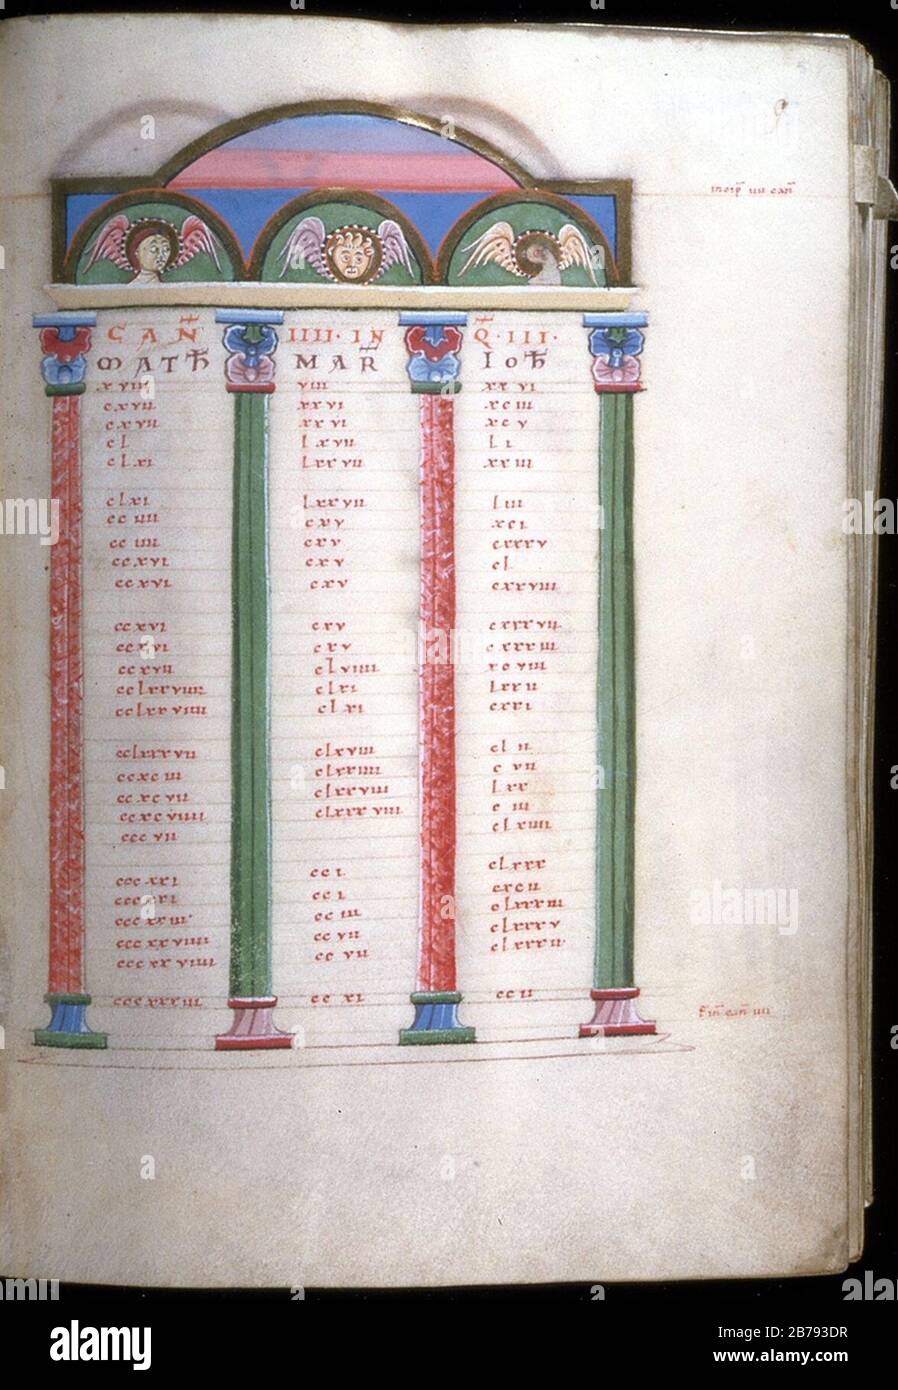 9
incip̄ iiii cañ
CAÑ IIII·IN Q̄·III·
MATH̄ MAR̄ IOH̄
xviii viii xxvi
cxvii xxvi xciii
cxvii xxvi xcv
cl lxvii li
clxi lxxvii xxiii
clxi lxxvii liii
cciiii cxv xci
cciiii cxv cxxxv
ccxvi cxv cl
ccxvi cxv cxxviii
ccxvi cxv cxxxvii
ccxvi cxv cxxxiii
ccxvii clviiii xcviii
cclxxviiii clxi lxxii
cclxxviiii clxi cxxi
cclxxxvii clxviii clii
ccxciii clxxiiii cvii
ccxcvii clxxviii lxx
ccxcviiii clxxxviii ciii
cccvii clxiiii
cccxxi cci clxxx
cccxxi cci cxcii
cccxxiii cciii clxxxiii
cccxxviiii ccvii clxxxv
cccxxviiii ccvii clxxxii
cccxxxiii ccxi ccii
Fin̄ cañ iiii
alamy
Image ID: 2B793DR
www.alamy.com